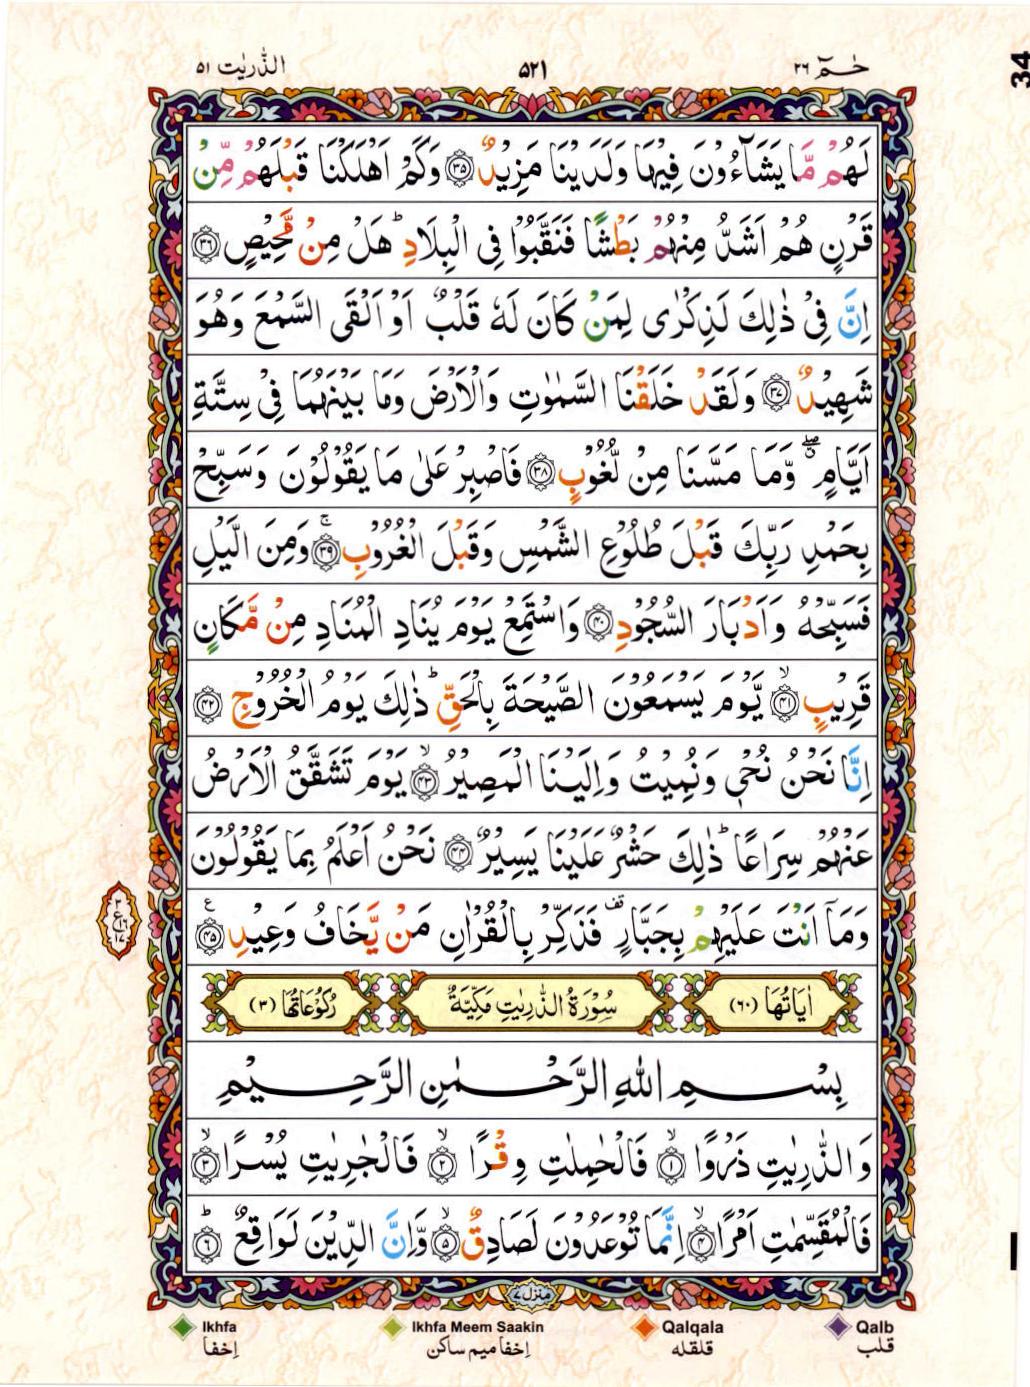 حٰمٓ ٢٦
٥٢١
الذّٰریٰت ٥١
34
لَهُمْ مَّا يَشَآءُوْنَ فِيْهَا وَلَدَيْنَا مَزِيْدٌ ﴿٣٥﴾ وَكَمْ اَهْلَكْنَا قَبْلَهُمْ مِّنْ
قَرْنٍ هُمْ اَشَدُّ مِنْهُمْ بَطْشًا فَنَقَّبُوْا فِى الْبِلَادِ ؕ هَلْ مِنْ مَّحِيْصٍ ﴿٣٦﴾
اِنَّ فِىْ ذٰلِكَ لَذِكْرٰى لِمَنْ كَانَ لَهٗ قَلْبٌ اَوْ اَلْقَى السَّمْعَ وَهُوَ
شَهِيْدٌ ﴿٣٧﴾ وَلَقَدْ خَلَقْنَا السَّمٰوٰتِ وَالْاَرْضَ وَمَا بَيْنَهُمَا فِىْ سِتَّةِ
اَيَّامٍ ۖ وَّمَا مَسَّنَا مِنْ لُّغُوْبٍ ﴿٣٨﴾ فَاصْبِرْ عَلٰى مَا يَقُوْلُوْنَ وَسَبِّحْ
بِحَمْدِ رَبِّكَ قَبْلَ طُلُوْعِ الشَّمْسِ وَقَبْلَ الْغُرُوْبِ ۚ ﴿٣٩﴾ وَمِنَ الَّيْلِ
فَسَبِّحْهُ وَاَدْبَارَ السُّجُوْدِ ﴿٤٠﴾ وَاسْتَمِعْ يَوْمَ يُنَادِ الْمُنَادِ مِنْ مَّكَانٍ
قَرِيْبٍ ۙ ﴿٤١﴾ يَّوْمَ يَسْمَعُوْنَ الصَّيْحَةَ بِالْحَقِّ ؕ ذٰلِكَ يَوْمُ الْخُرُوْجِ ﴿٤٢﴾
اِنَّا نَحْنُ نُحْىٖ وَنُمِيْتُ وَاِلَيْنَا الْمَصِيْرُ ۙ ﴿٤٣﴾ يَوْمَ تَشَقَّقُ الْاَرْضُ
عَنْهُمْ سِرَاعًا ؕ ذٰلِكَ حَشْرٌ عَلَيْنَا يَسِيْرٌ ﴿٤٤﴾ نَحْنُ اَعْلَمُ بِمَا يَقُوْلُوْنَ
وَمَاۤ اَنْتَ عَلَيْهِمْ بِجَبَّارٍ قف فَذَكِّرْ بِالْقُرْاٰنِ مَنْ يَّخَافُ وَعِيْدِ ﴿٤٥﴾ ع
٣
ع
١٦
١٧
اٰيَاتُهَا (٦٠)
سُوْرَةُ الذّٰرِيٰتِ مَكِّيَّةٌ
رُكُوْعَاتُهَا (٣)
بِسْمِ اللهِ الرَّحْمٰنِ الرَّحِيْمِ
وَالذّٰرِيٰتِ ذَرْوًا ۙ ﴿١﴾ فَالْحٰمِلٰتِ وِقْرًا ۙ ﴿٢﴾ فَالْجٰرِيٰتِ يُسْرًا ۙ ﴿٣﴾
فَالْمُقَسِّمٰتِ اَمْرًا ۙ ﴿٤﴾ اِنَّمَا تُوْعَدُوْنَ لَصَادِقٌ ۙ ﴿٥﴾ وَّاِنَّ الدِّيْنَ لَوَاقِعٌ ؕ ﴿٦﴾
منزل ٧
Ikhfa
Ikhfa Meem Saakin
Qalqala
Qalb
اِخفا
اِخفا میم ساکن
قلقله
قلب